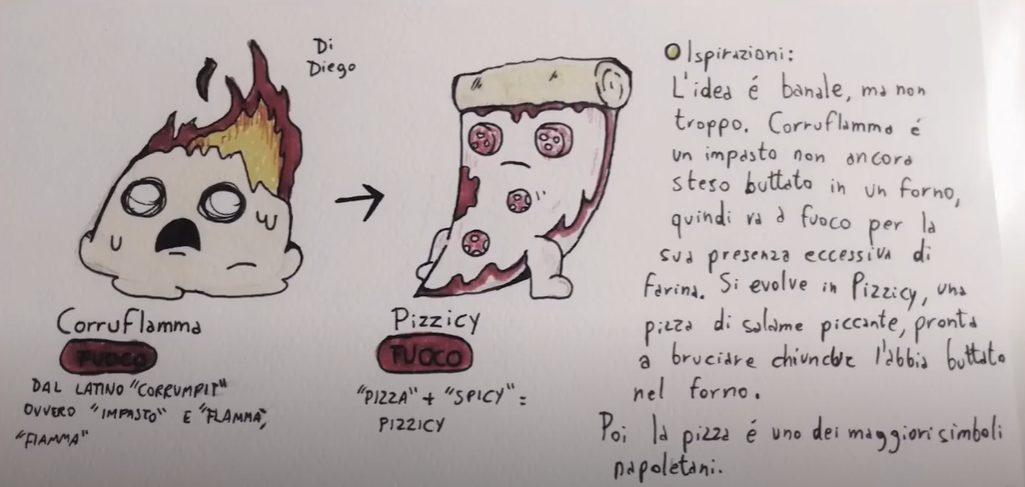 Di
Diego
Corruflamma
FUOCO
DAL LATINO "CORRUMPIT"
OVVERO "IMPASTO" E "FLAMMA",
"FIAMMA"
Pizzicy
FUOCO
"PIZZA" + "SPICY" =
PIZZICY
Ispirazioni:
L'idea é banale, ma non
troppo. Corruflamma é
un impasto non ancora
steso buttato in un forno,
quindi va a fuoco per la
sua presenza eccessiva di
farina. Si evolve in Pizzicy, una
pizza di salame piccante, pronta
a bruciare chiunque l'abbia buttato
nel forno.
Poi la pizza é uno dei maggiori simboli
napoletani.